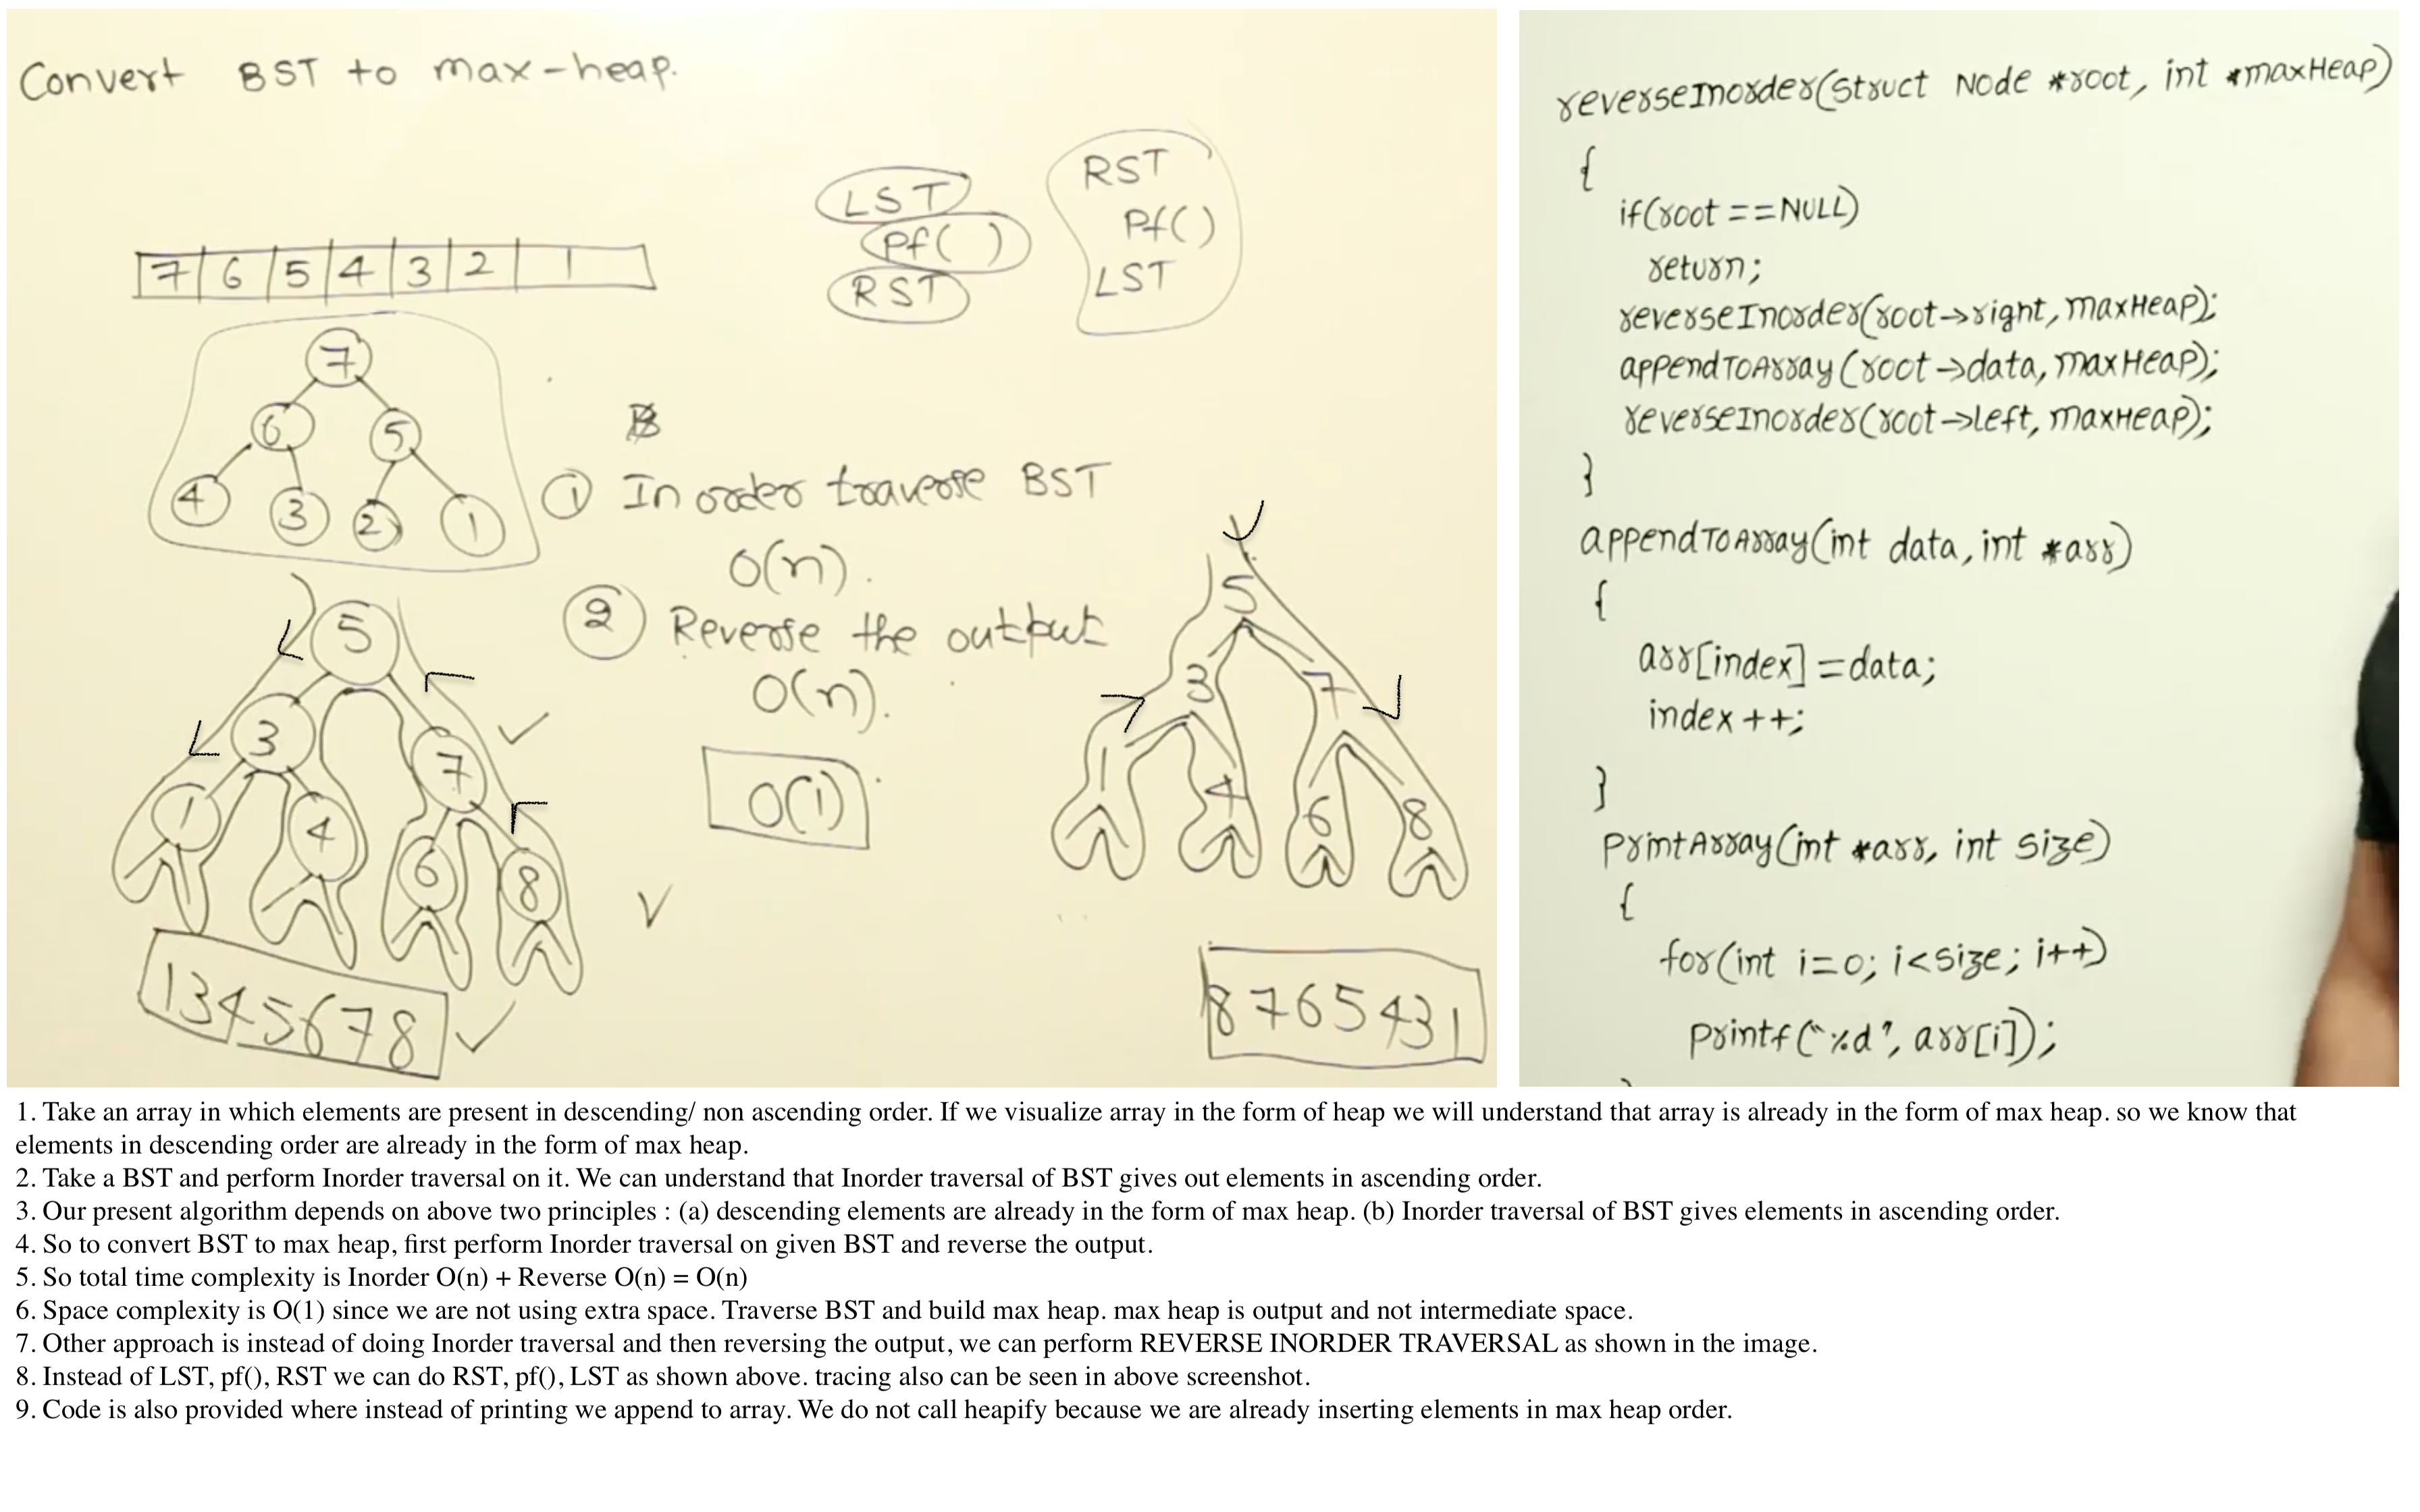 Convert BST to max-heap.
7 6 5 4 3 2 1
LST
Pf( )
RST
RST
Pf()
LST
7
6 5
4 3 2 1
B
1 Inorder traverse BST
O(n).
2 Reverse the output
O(n).
O(1)
5
3 7
1 4 6 8
1345678
5
3 7
1 4 6 8
8765431
reverseInorder(struct Node *root, int *maxHeap)
{
if(root ==NULL)
return;
reverseInorder(root->right, maxHeap);
appendToArray(root->data, maxHeap);
reverseInorder(root->left, maxHeap);
}
appendToArray(int data, int *arr)
{
arr[index]=data;
index++;
}
printArray(int *arr, int size)
{
for(int i=0; i<size; i++)
printf("%d", arr[i]);
1. Take an array in which elements are present in descending/ non ascending order. If we visualize array in the form of heap we will understand that array is already in the form of max heap. so we know that
elements in descending order are already in the form of max heap.
2. Take a BST and perform Inorder traversal on it. We can understand that Inorder traversal of BST gives out elements in ascending order.
3. Our present algorithm depends on above two principles : (a) descending elements are already in the form of max heap. (b) Inorder traversal of BST gives elements in ascending order.
4. So to convert BST to max heap, first perform Inorder traversal on given BST and reverse the output.
5. So total time complexity is Inorder O(n) + Reverse O(n) = O(n)
6. Space complexity is O(1) since we are not using extra space. Traverse BST and build max heap. max heap is output and not intermediate space.
7. Other approach is instead of doing Inorder traversal and then reversing the output, we can perform REVERSE INORDER TRAVERSAL as shown in the image.
8. Instead of LST, pf(), RST we can do RST, pf(), LST as shown above. tracing also can be seen in above screenshot.
9. Code is also provided where instead of printing we append to array. We do not call heapify because we are already inserting elements in max heap order.